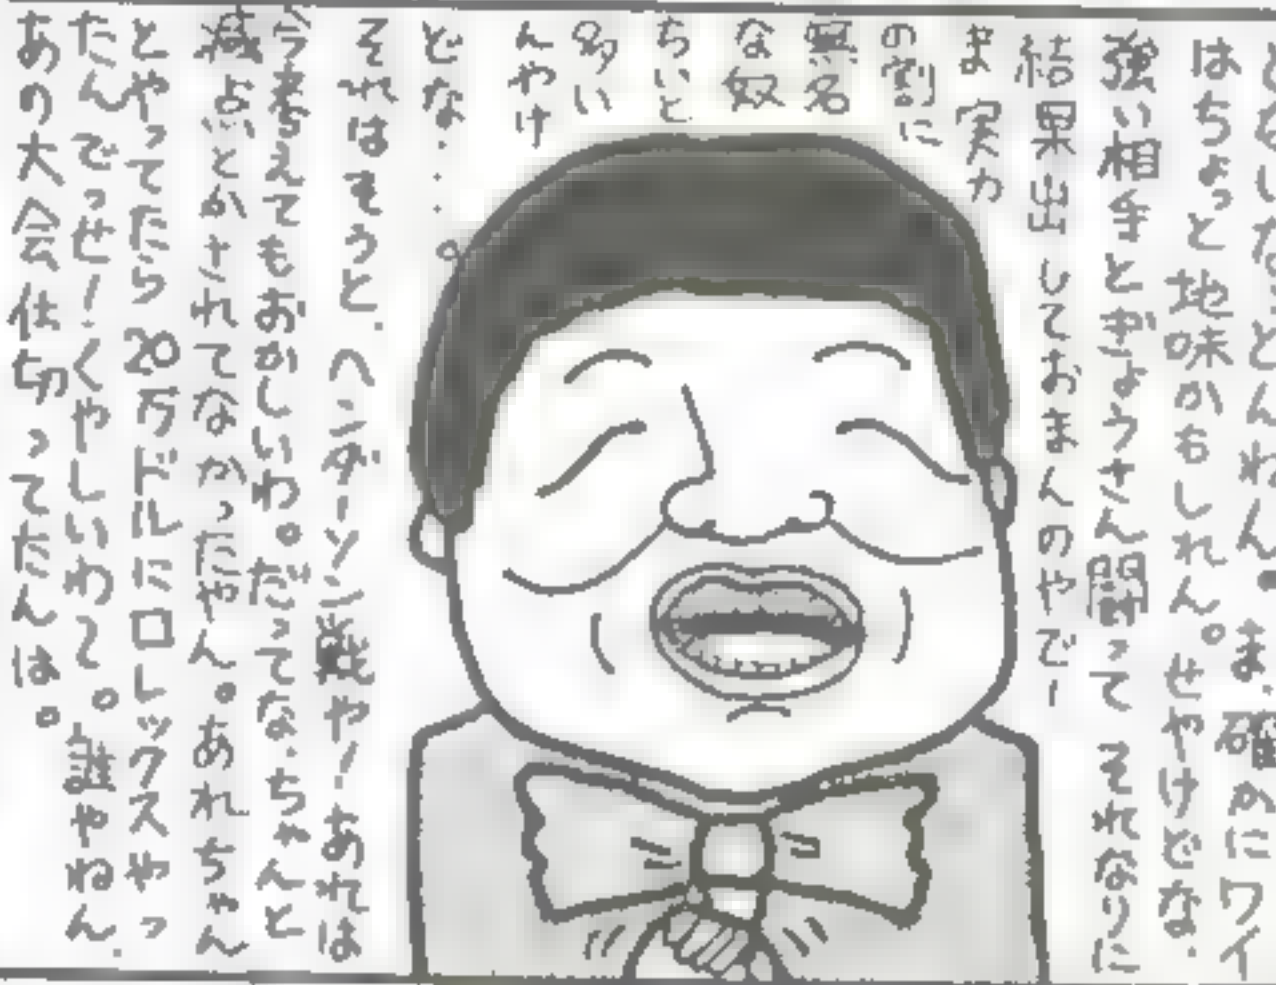 となしいなっとんねん。ま、確かにワイ
はちょっと地味かもしれん。せやけどな・
強い相手とぎょうさん闘って それなりに
結果出しておまんのやでー
ま 実力
の割に
無名
な奴
ちいと
多い
んやけ
どな・・・。
それはそうと、ヘンダーソン戦や！あれは
今考えてもおかしいわ。だってな、ちゃんと
減点とかされてなかったやん。あれちゃん
とやってたら20万ドルにロレックスやっ
たんでっせ！くやしいわて。誰やねん、
あの大会仕切ってたんは。